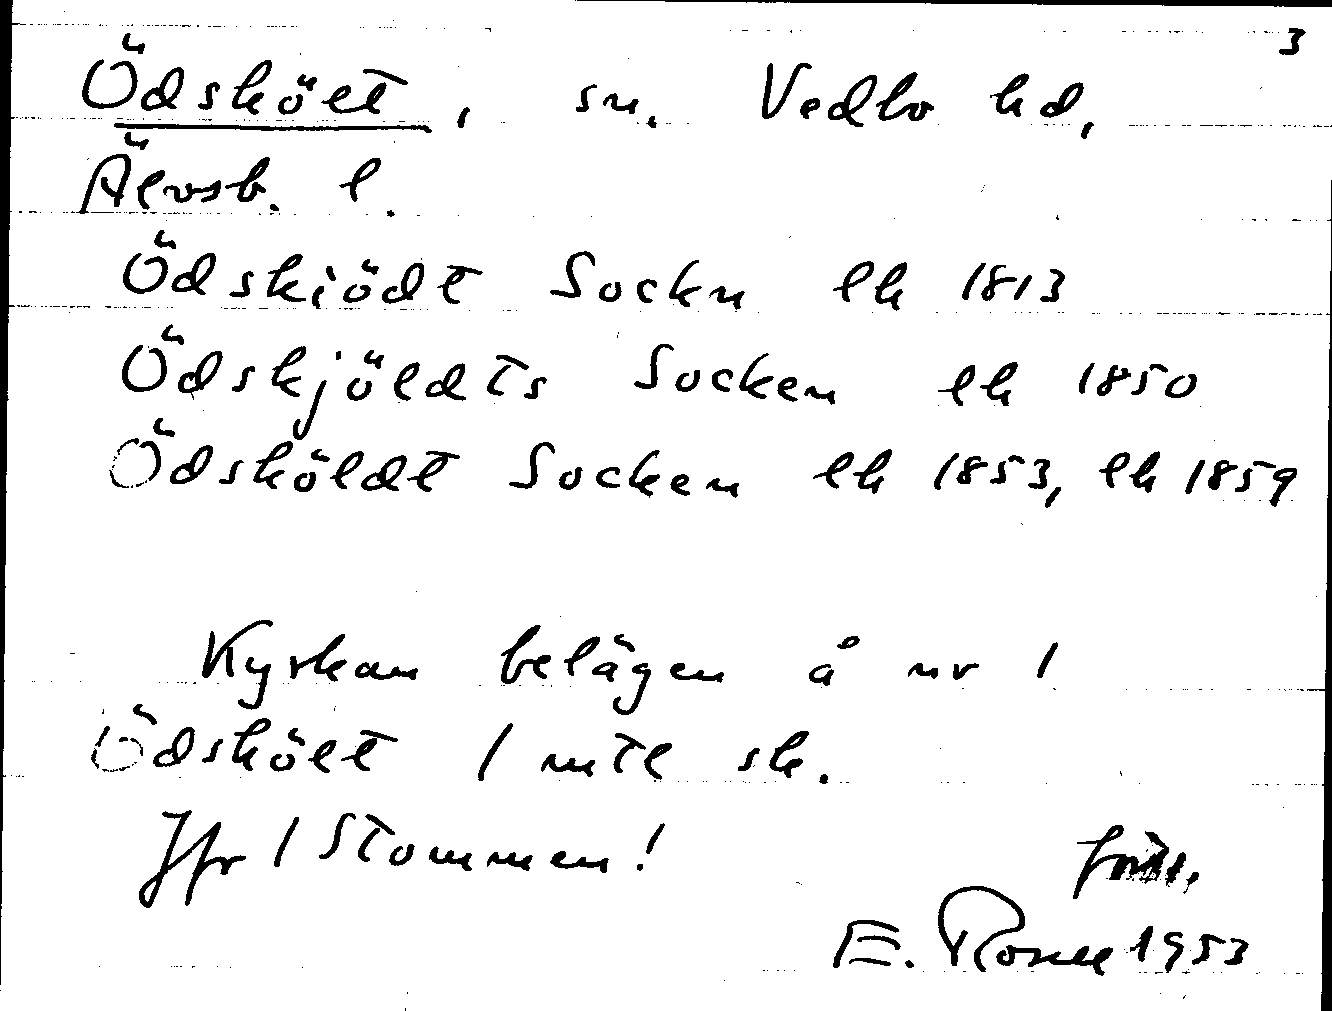 3
Ödskölt, sn. Vedbo hd,
Älvsb. l.
Ödskiödt Sockn lk 1813
Ödskjöldts Socken lk 1850
Ödsköldt Socken lk 1853, lk 1859
Kyrkan belägen å nr 1
Ödskölt 1 mtl sk.
Jfr 1 Stommen!
E. Rosell 1953